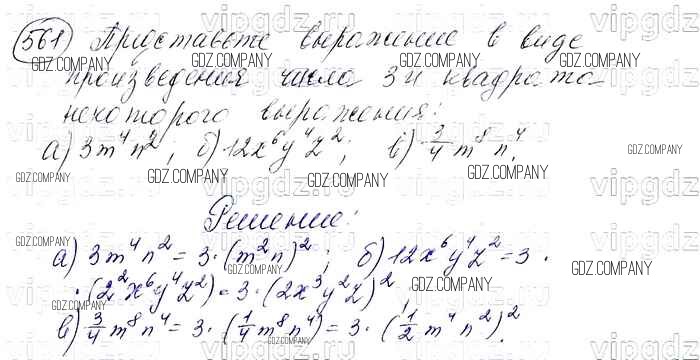 561) Представьте выражение в виде
произведения числа 3 и квадрата
некоторого выражения:
а) 3m⁴n²; б) 12x⁶y⁴z²; в) 3/4 m⁸n⁴.
Решение:
а) 3m⁴n² = 3·(m²n)²; б) 12x⁶y⁴z² = 3·
·(2²x⁶y⁴z²) = 3·(2x³y²z)²
в) 3/4 m⁸n⁴ = 3·(1/4 m⁸n⁴) = 3·(1/2 m⁴n²)².
GDZ.COMPANY
vipgdz.ru